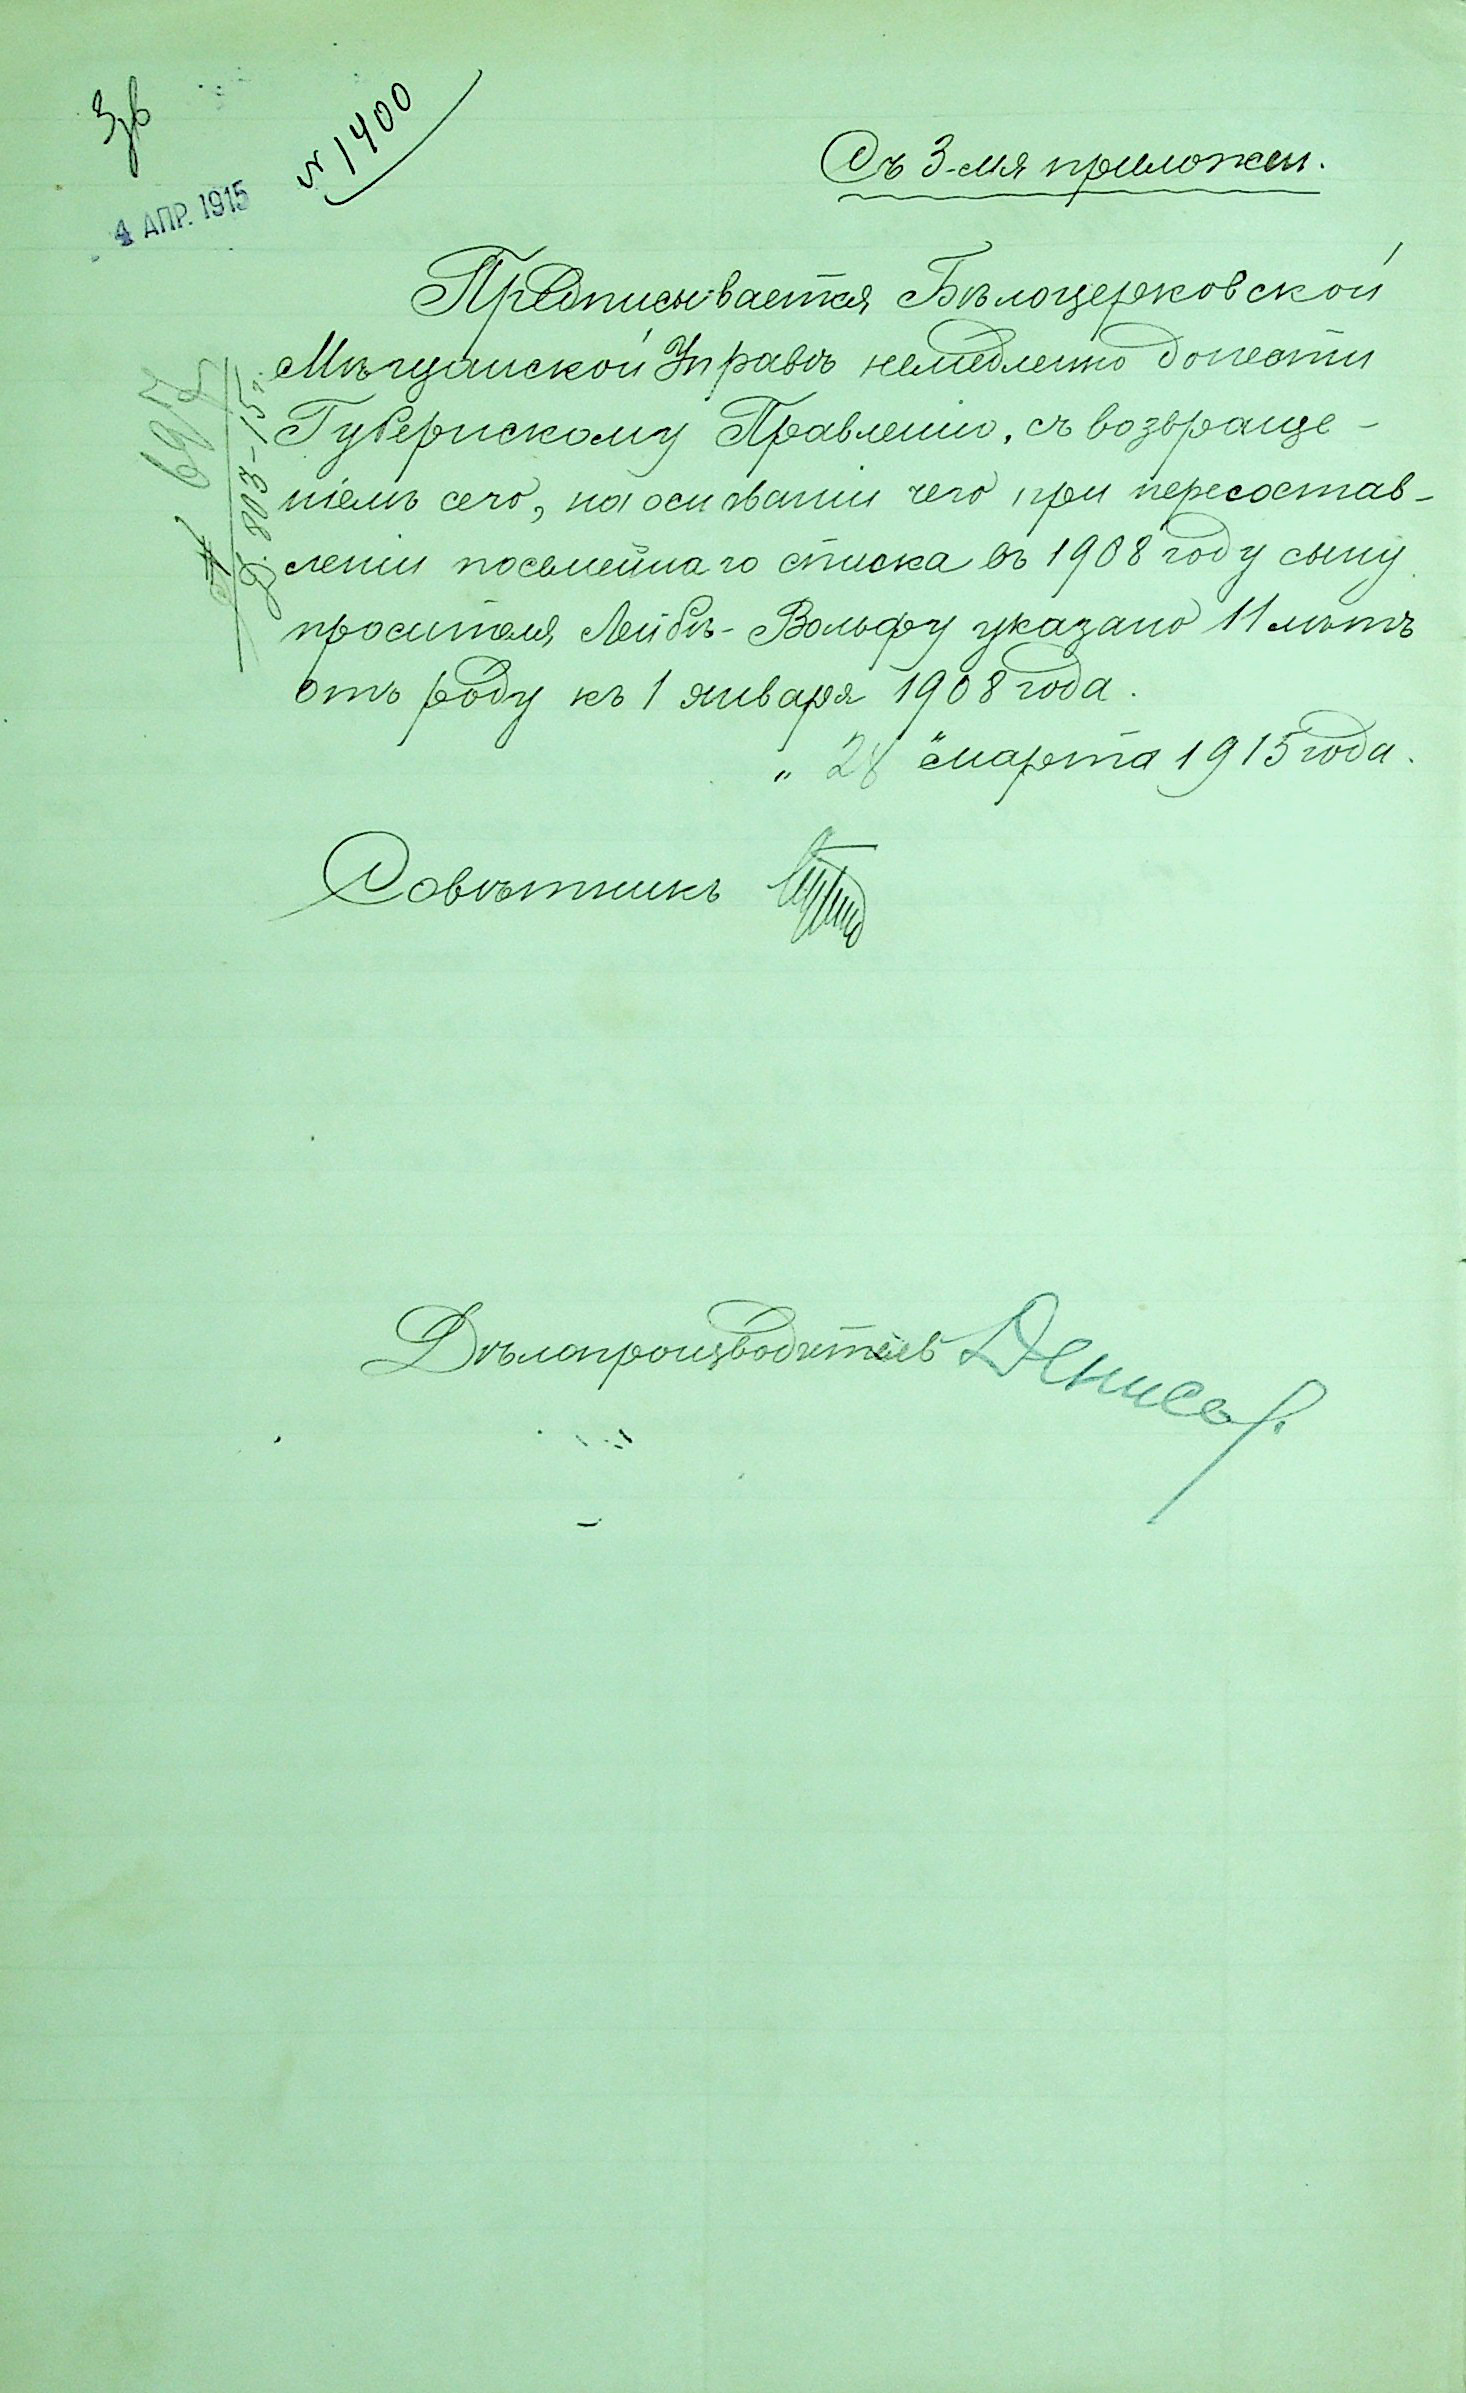 № 1400
4 АПР. 1915
Съ 3-мя приложен.
Предписывается Бѣлоцерковской
Мѣщанской Управѣ немедленно донести
Губернскому Правленію, съ возвраще-
ніемъ сего, на основаніи чего при пересостав-
леніи посемейнаго списка въ 1908 году сыну
просителя Лейбѣ-Вольфу указано 11 лѣтъ
отъ роду къ 1 января 1908 года.
„ 28 " марта 1915 года.
Д. 803-15 г.
Совѣтникъ
Дѣлопроизводитель Денисов